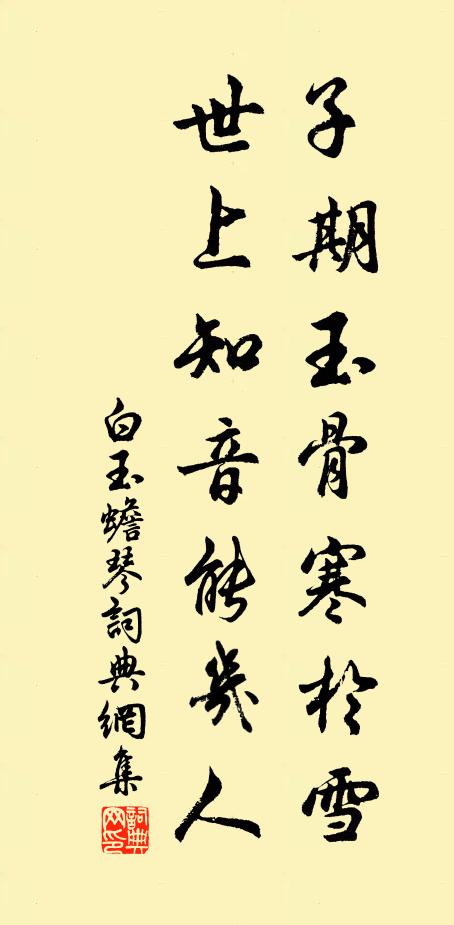 子期玉骨寒於雪
世上知音能幾人
白玉蟾琴詞典網集
詞典網印